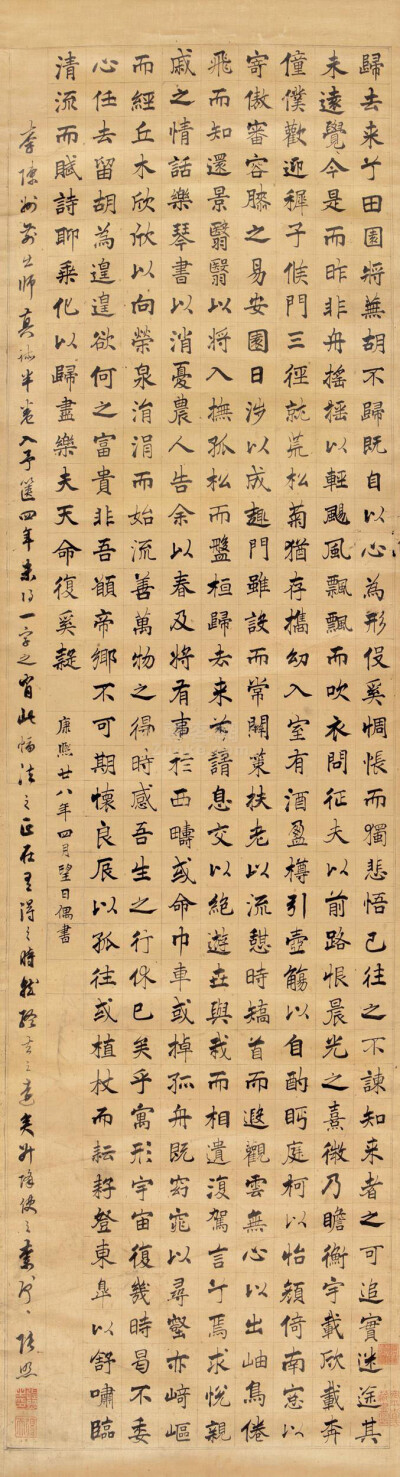 歸去来兮田園將蕪胡不歸既自以心為形役奚惆悵而獨悲悟已往之不諫知来者之可追實迷途其
未遠覺今是而昨非舟搖搖以輕颺風飄飄而吹衣問征夫以前路恨晨光之熹微乃瞻衡宇載欣載奔
僮僕歡迎稺子候門三徑就荒松菊猶存攜幼入室有酒盈樽引壺觴以自酌眄庭柯以怡顏倚南窓以
寄傲審容膝之易安園日涉以成趣門雖設而常關策扶老以流憩時矯首而遐觀雲無心以出岫鳥倦
飛而知還景翳翳以將入撫孤松而盤桓歸去来兮請息交以絕遊世與我而相遺復駕言兮焉求悅親
戚之情話樂琴書以消憂農人告余以春及將有事於西疇或命巾車或棹孤舟既窈窕以尋壑亦崎嶇
而經丘木欣欣以向榮泉涓涓而始流善萬物之得時感吾生之行休已矣乎寓形宇宙復幾時曷不委
心任去留胡為遑遑欲何之富貴非吾願帝鄉不可期懷良辰以孤往或植杖而耘耔登東皐以舒嘯臨
清流而賦詩聊乘化以歸盡樂夫天命復奚疑
康熙廿八年四月望日偶書
師真半卷入予篋四年未一字之此幅法之正在時